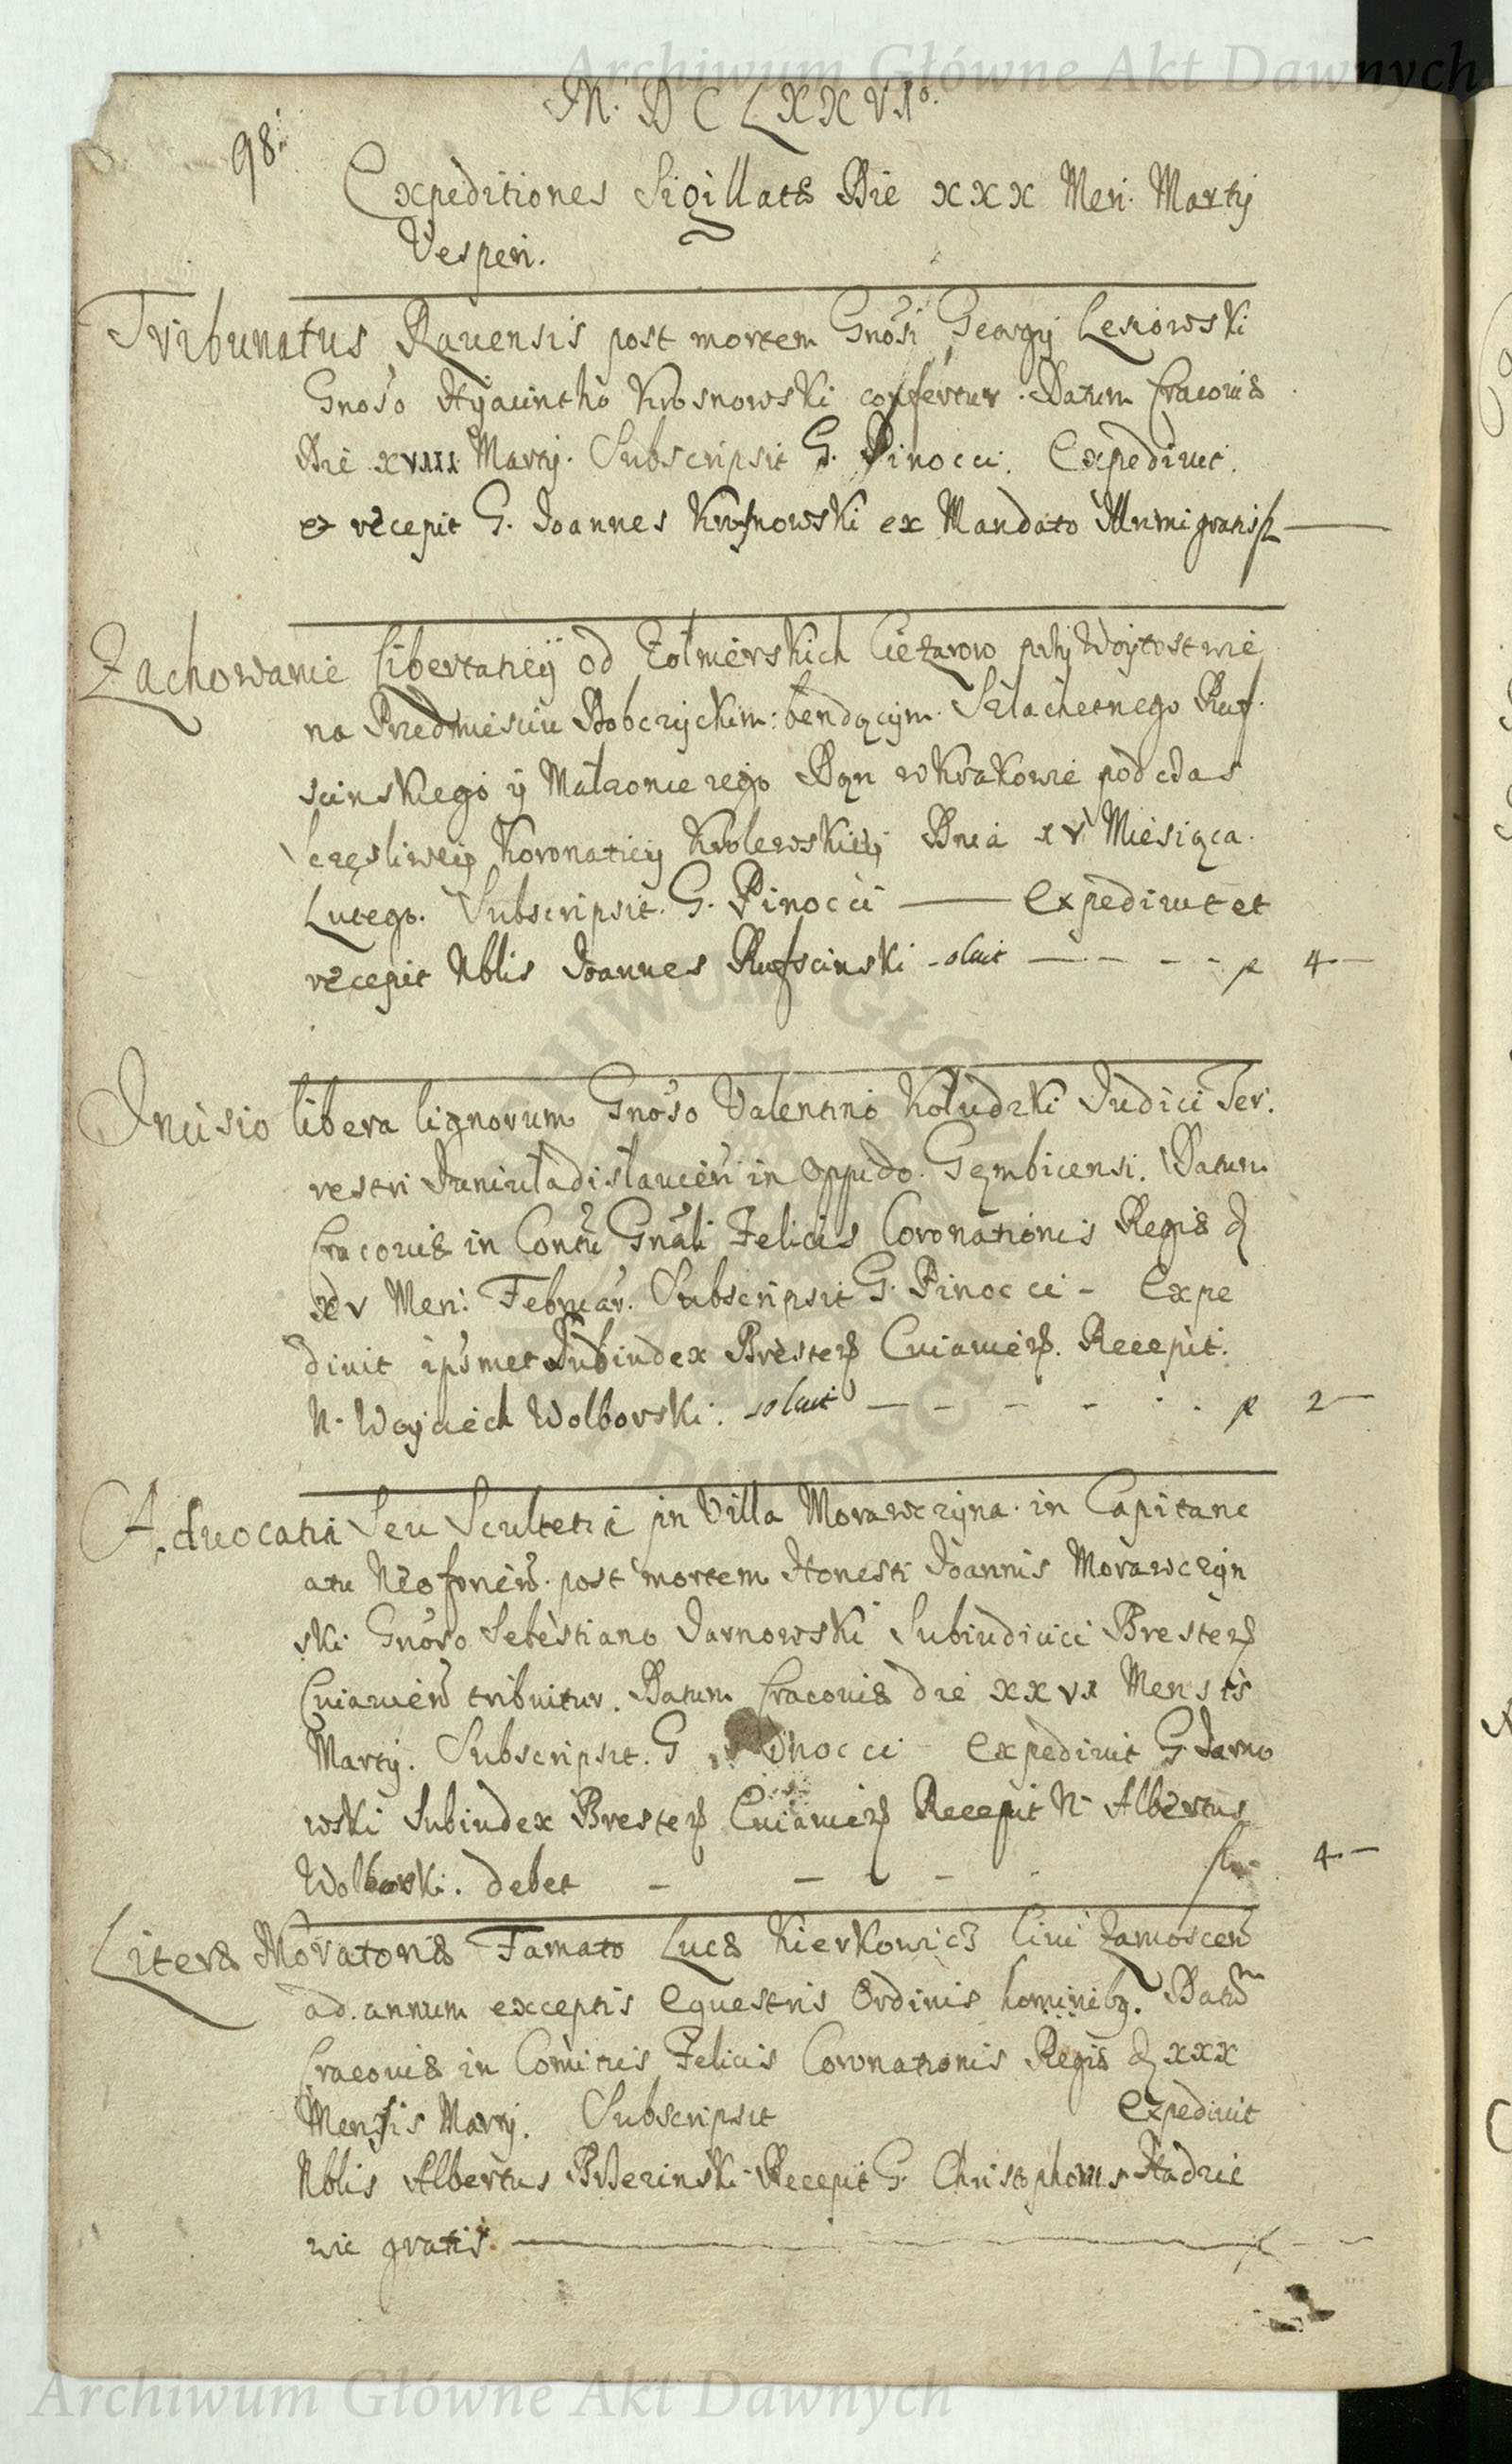 Archiwum Główne Akt Dawnych
M. D C L X X V I°.
98.
Expeditiones Sigillatæ Die XXX Men. Martij
Vesperi.
Tribunatus Rauensis post mortem Gnosi Georgij Leniowski
Gnoso Hyacintho Krosnowski confertur. Datum Cracouiæ
Die XVIII Martij. Subscripsit G. Pinocci. Expediuit.
et recepit G. Joannes Krosnowski ex Mandato Illmi gratis
Zachowanie libertaciey od Zołnierskich Ciezarow przy Woytostwie
na Przedmiesciu Bobczyckim: bendącym. Szlachetnego Ruf
scinskiego y Małzonce iego Dan w Krakowie pod czas
szczęsliwey Koronaciey Krolewskiey Dnia XV Miesiąca
Lutego. Subscripsit. G. Pinocci — Expediuit et
recepit Nblis Joannes Rufscinski soluit — — — — 4 —
Incisio libera lignorum Gnoso Valentino Kołudzki Judici Ter.
restri Juniuladislauień in Oppido Gembicensi. Datum
Cracouiæ in Contu Gnali Felicis Coronationis Regis d
XV Men: Februar. Subscripsit G. Pinocci – Expe
diuit ipsmet Subiudex Bresteń Cuiauień. Recepit.
N. Woyciech Wolborski. soluit — — — — 2 —
Aduocatia Seu Scultetia in Villa Morawczyna in Capitane
atu Neoforień. post mortem Honesti Joannis Morawczyn
ski Gnoso Sebestiano Jarnowski Subiudicici Bresteń
Cuiauień tribuitur. Datum Cracouiæ die XXVI Mensis
Martij. Subscripsit. G Pinocci – Expediuit G. Jarno
wski Subiudex Bresteń Cuiauień Recepit N. Albertus
Wolborski. debet — — — — 4 —
Literæ Moratoriæ Famato Lucæ Kierkowicz Ciui Zamosceń
ad. annum exceptis Equestris Ordinis hominibq. Datum
Cracouiæ in Comitiis Felicis Coronationis Regis d XXX
Mensis Martij. Subscripsit Expediuit
Nblis Albertus Recepit G. Christophorus Hadzie
wic gratis. —
Archiwum Główne Akt Dawnych